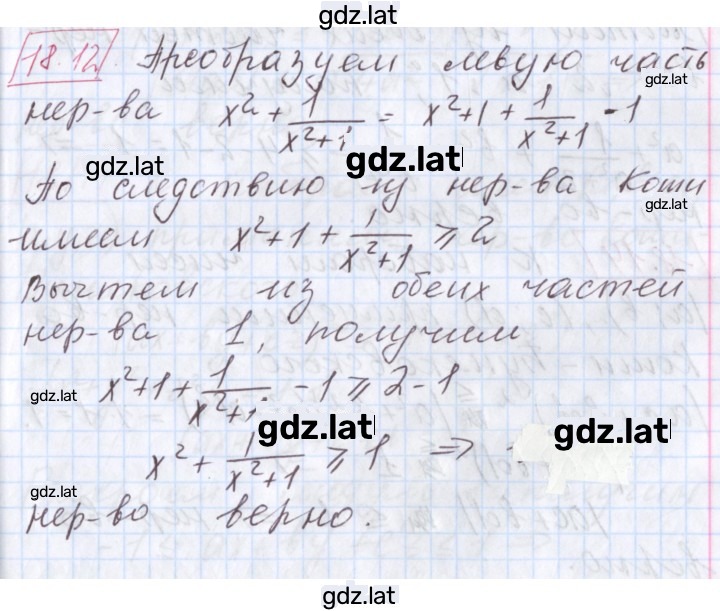 gdz.lat
18.12. Преобразуем левую часть
gdz.lat
нер-ва x²+1/(x²+1) = x²+1+1/(x²+1) -1
gdz.lat
gdz.lat
По следствию из нер-ва Коши
gdz.lat
имеем x²+1+1/(x²+1) ⩾ 2
Вычтем из обеих частей
нер-ва 1, получим
x²+1+1/(x²+1) -1 ⩾ 2-1
gdz.lat
gdz.lat
gdz.lat
x²+1/(x²+1) ⩾ 1 ⇒
gdz.lat
нер-во верно.
gdz.lat